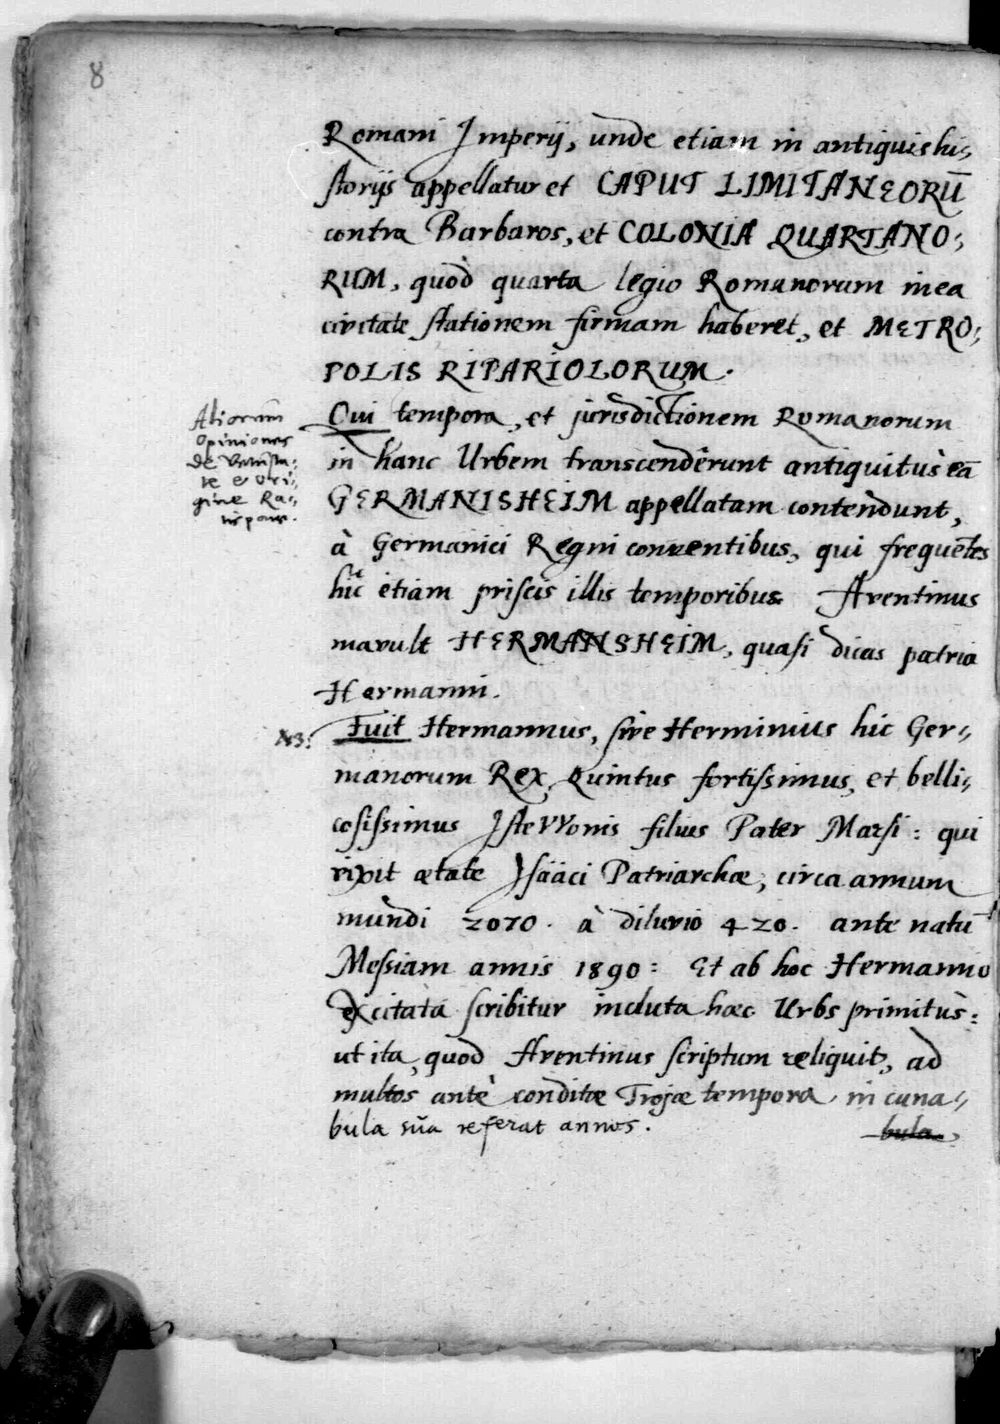 8
Romani Imperij, unde etiam in antiquis hi„
storijs appellatur et CAPUT LIMITANEORŪ
contra Barbaros, et COLONIA QUARTANO„
RUM, quòd quarta legio Romanorum in ea
civitate stationem firmam haberet, et METRO„
POLIS RIPARIOLORUM.
Aliorum
opiniones
de Vetusta„
te et ori„
gine Ra„
tispone.
Qui tempora, et jurisdictionem Romanorum
in hanc Urbem transcenderunt antiquitùs eā
GERMANISHEIM appellatam contendunt,
à Germanici Regni conventibus, qui frequētes
hîc etiam priscis illis temporibus. Aventinus
mavult HERMANSHEIM, quasi dicas patria
Hermanni.
NB:
Fuit Hermannus, sive Herminius hic Ger„
manorum Rex Quintus fortissimus, et belli„
cosissimus IsteVVonis filius Pater Marsi: qui
vixit ætate Isääci Patriarchæ, circa annum
mundi 2070. à diluvio 420. ante natū
Messiam annis 1890: Et ab hoc Hermanno
excitata scribitur incluta hæc Urbs primitùs:
ut ita, quod Aventinus scriptum reliquit, ad
multos antè conditæ Trojæ tempora in cuna„
bula sua referat annos.
bula